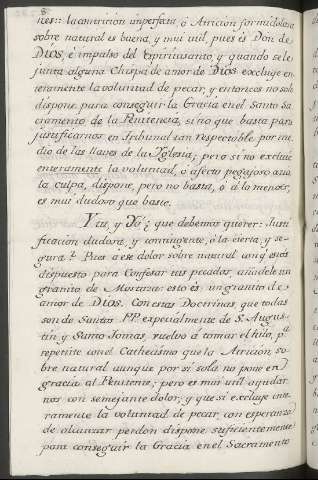 8
nes:: la contricion imperfeta, ó Atricion formidolosa
sobre natural es buena, y mui util, pues és Don de
DIOS, é impulso del Espiritusanto, y quando sele
junta alguna Chispa de amor de DIOS excluye en
teramente la voluntad de pecar, y entonces no solo
dispone, para conseguir la Gracia en el Santo Sa
cramento de la Penitencia, si no que basta para
justificarnos en Tribunal tan respectable por me
dio de las llaves de la Yglesia; pero si no excluie
enteramente la voluntad, ó afecto pegajoso a
la culpa, dispone, pero no basta, ó á lo menos,
es mui dudoso que baste.
Y tu, y Yó, que debemos querer: Justi
ficación dudosa, y contingente, ó la cierta, y se-
gura? Pues a ese dolor sobre natural con q. estás
dispuesto para Confesar tus pecados, añadele un
granito de Mostaza: esto és un granito de
amor de DIOS. Con estas Doctrinas, que todas
son de Santos PP. especialmente de S. Agus-
tin, y Santo Tomas, vuelvo á tomar el hilo, p.ª
repetirte con el Cathecismo que la Atricion, so-
bre natural aunque por si sola no pone en
gracia al Penitente; pero es mui util ayudar
nos con semejante dolor, y que si excluye ente-
ramente la voluntad de pecar, con esperanza
de alcanzar perdon dispone suficientemente
para conseguir la Gracia en el Sacramento